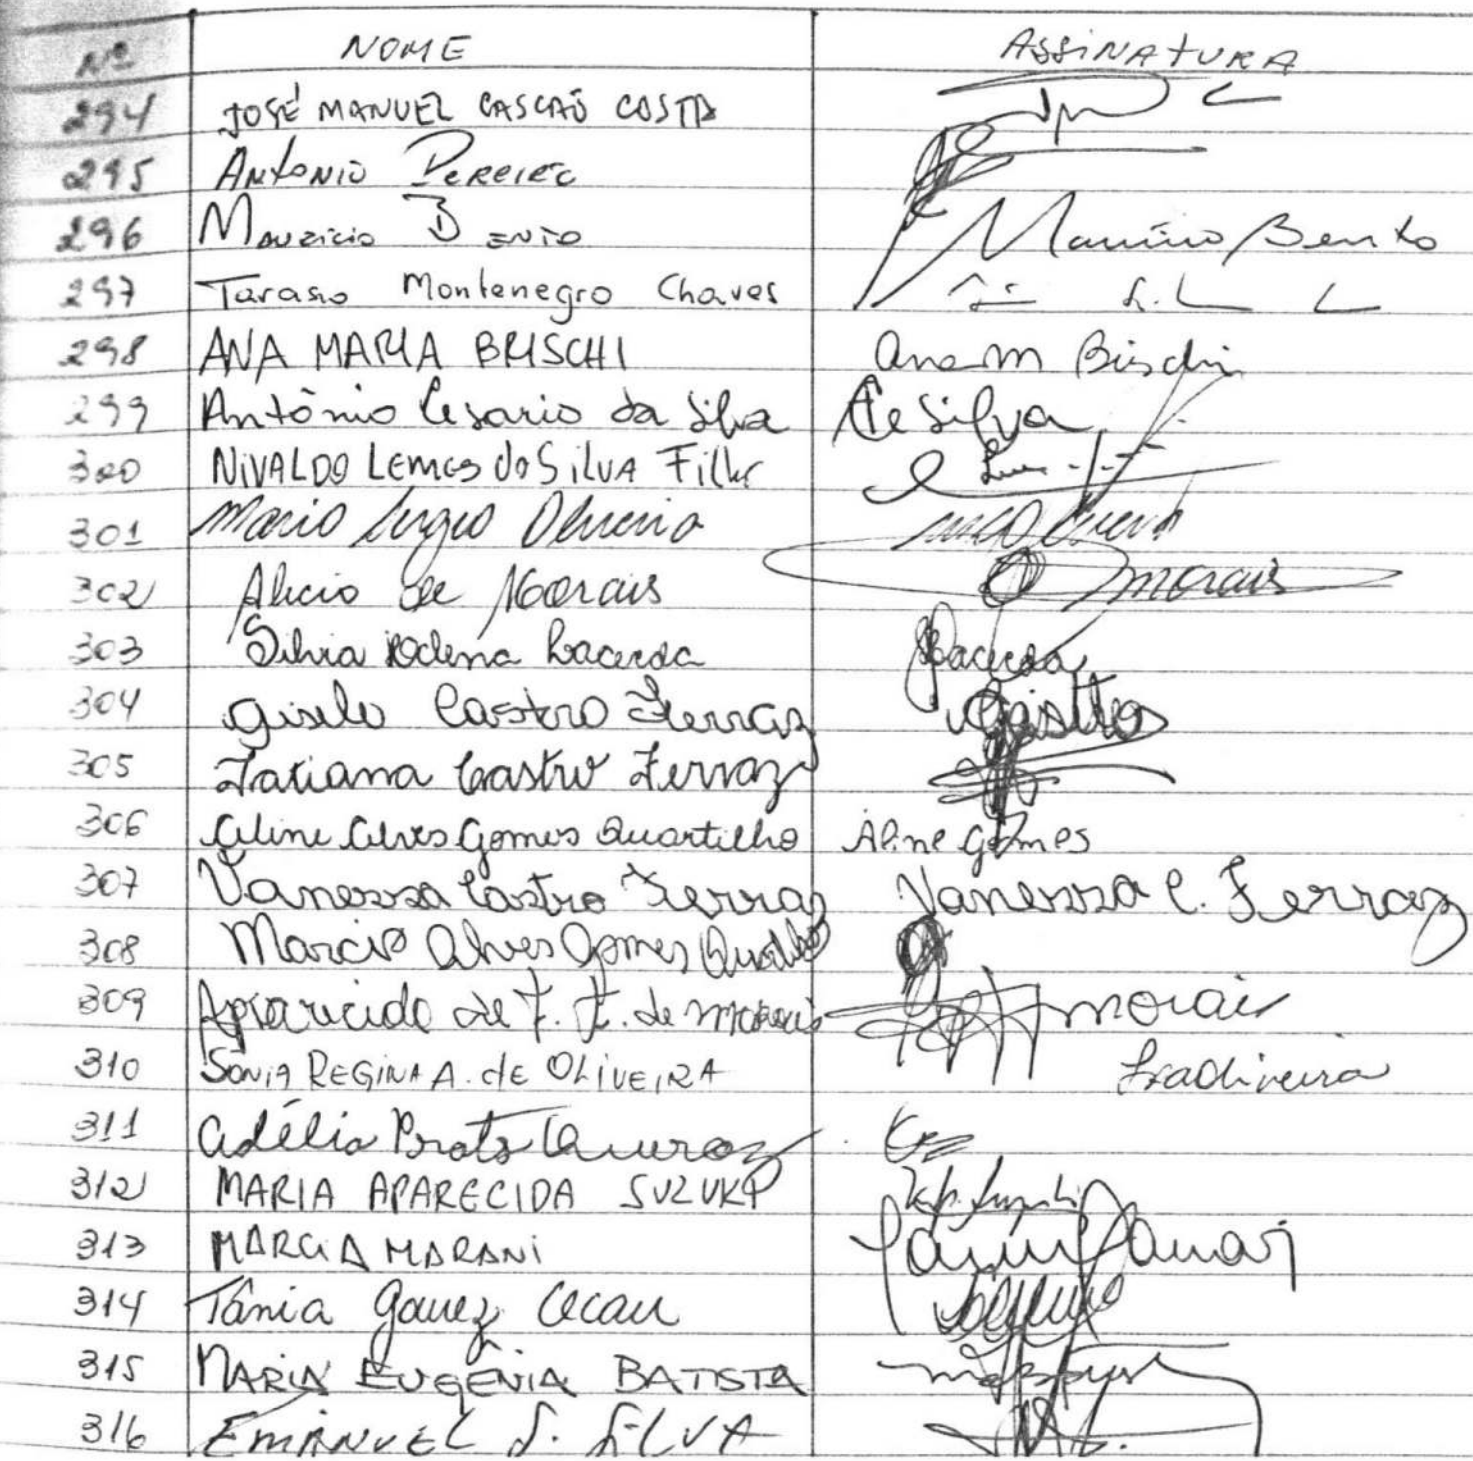 Nº NOME ASSINATURA
294 JOSÉ MANUEL CASCÃO COSTA
295 Antonio Pereira
296 Mauricio Bento Mauricio Bento
297 Tarasio Montenegro Chaves
298 ANA MARIA BRISCHI Ana M Brischi
299 Antônio Cesario da Silva AC Silva
300 NIVALDO LEMES da SILVA Filho
301 Mario Sergio Oliveira
302 Alicio de Morais Morais
303 Silvia Helena Lacerda Lacerda
304 Gisele Castro Ferraz
305 Tatiana Castro Ferraz
306 Aline Alves Gomes Quartilho Aline Gomes
307 Vanessa Castro Ferraz Vanessa C. Ferraz
308 Marcio Alves Gomes
309 Aparecida de F. F. de Morais Morais
310 SONIA REGINA A. de OLIVEIRA
311 Adélia Prato Queiroz
312 MARIA APARECIDA SUZUKI
313 MARCIA MARANI
314 Tânia
315 MARIA EUGÊNIA BATISTA
316 EMANUEL S. SILVA